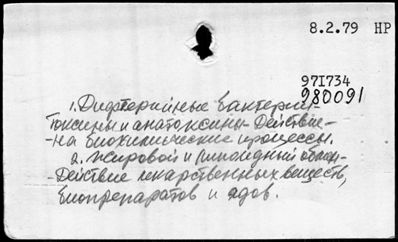 8.2.79 НР
971734
980091
1. Дифтерийные бактерии-
токсины и анатоксины- Действие-
-на биохимические процессы.
2. Жировой и липоидный обмен-
-Действие лекарственных веществ,
биопрепаратов и ядов.